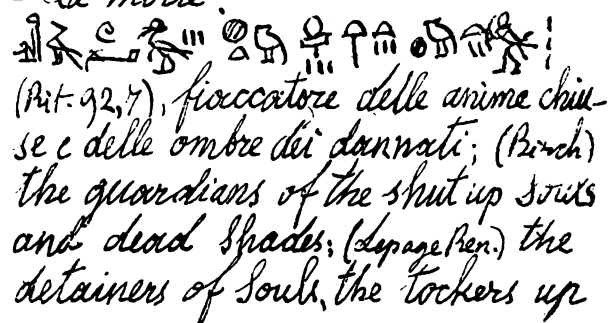 la morte.
(Rit. 92,7), fiaccatore delle anime chiu-
se e delle ombre dei dannati; (Birch)
the guardians of the shut up souls
and dead Shades; (Lepage Ren.) the
detainers of Souls, the tockers up